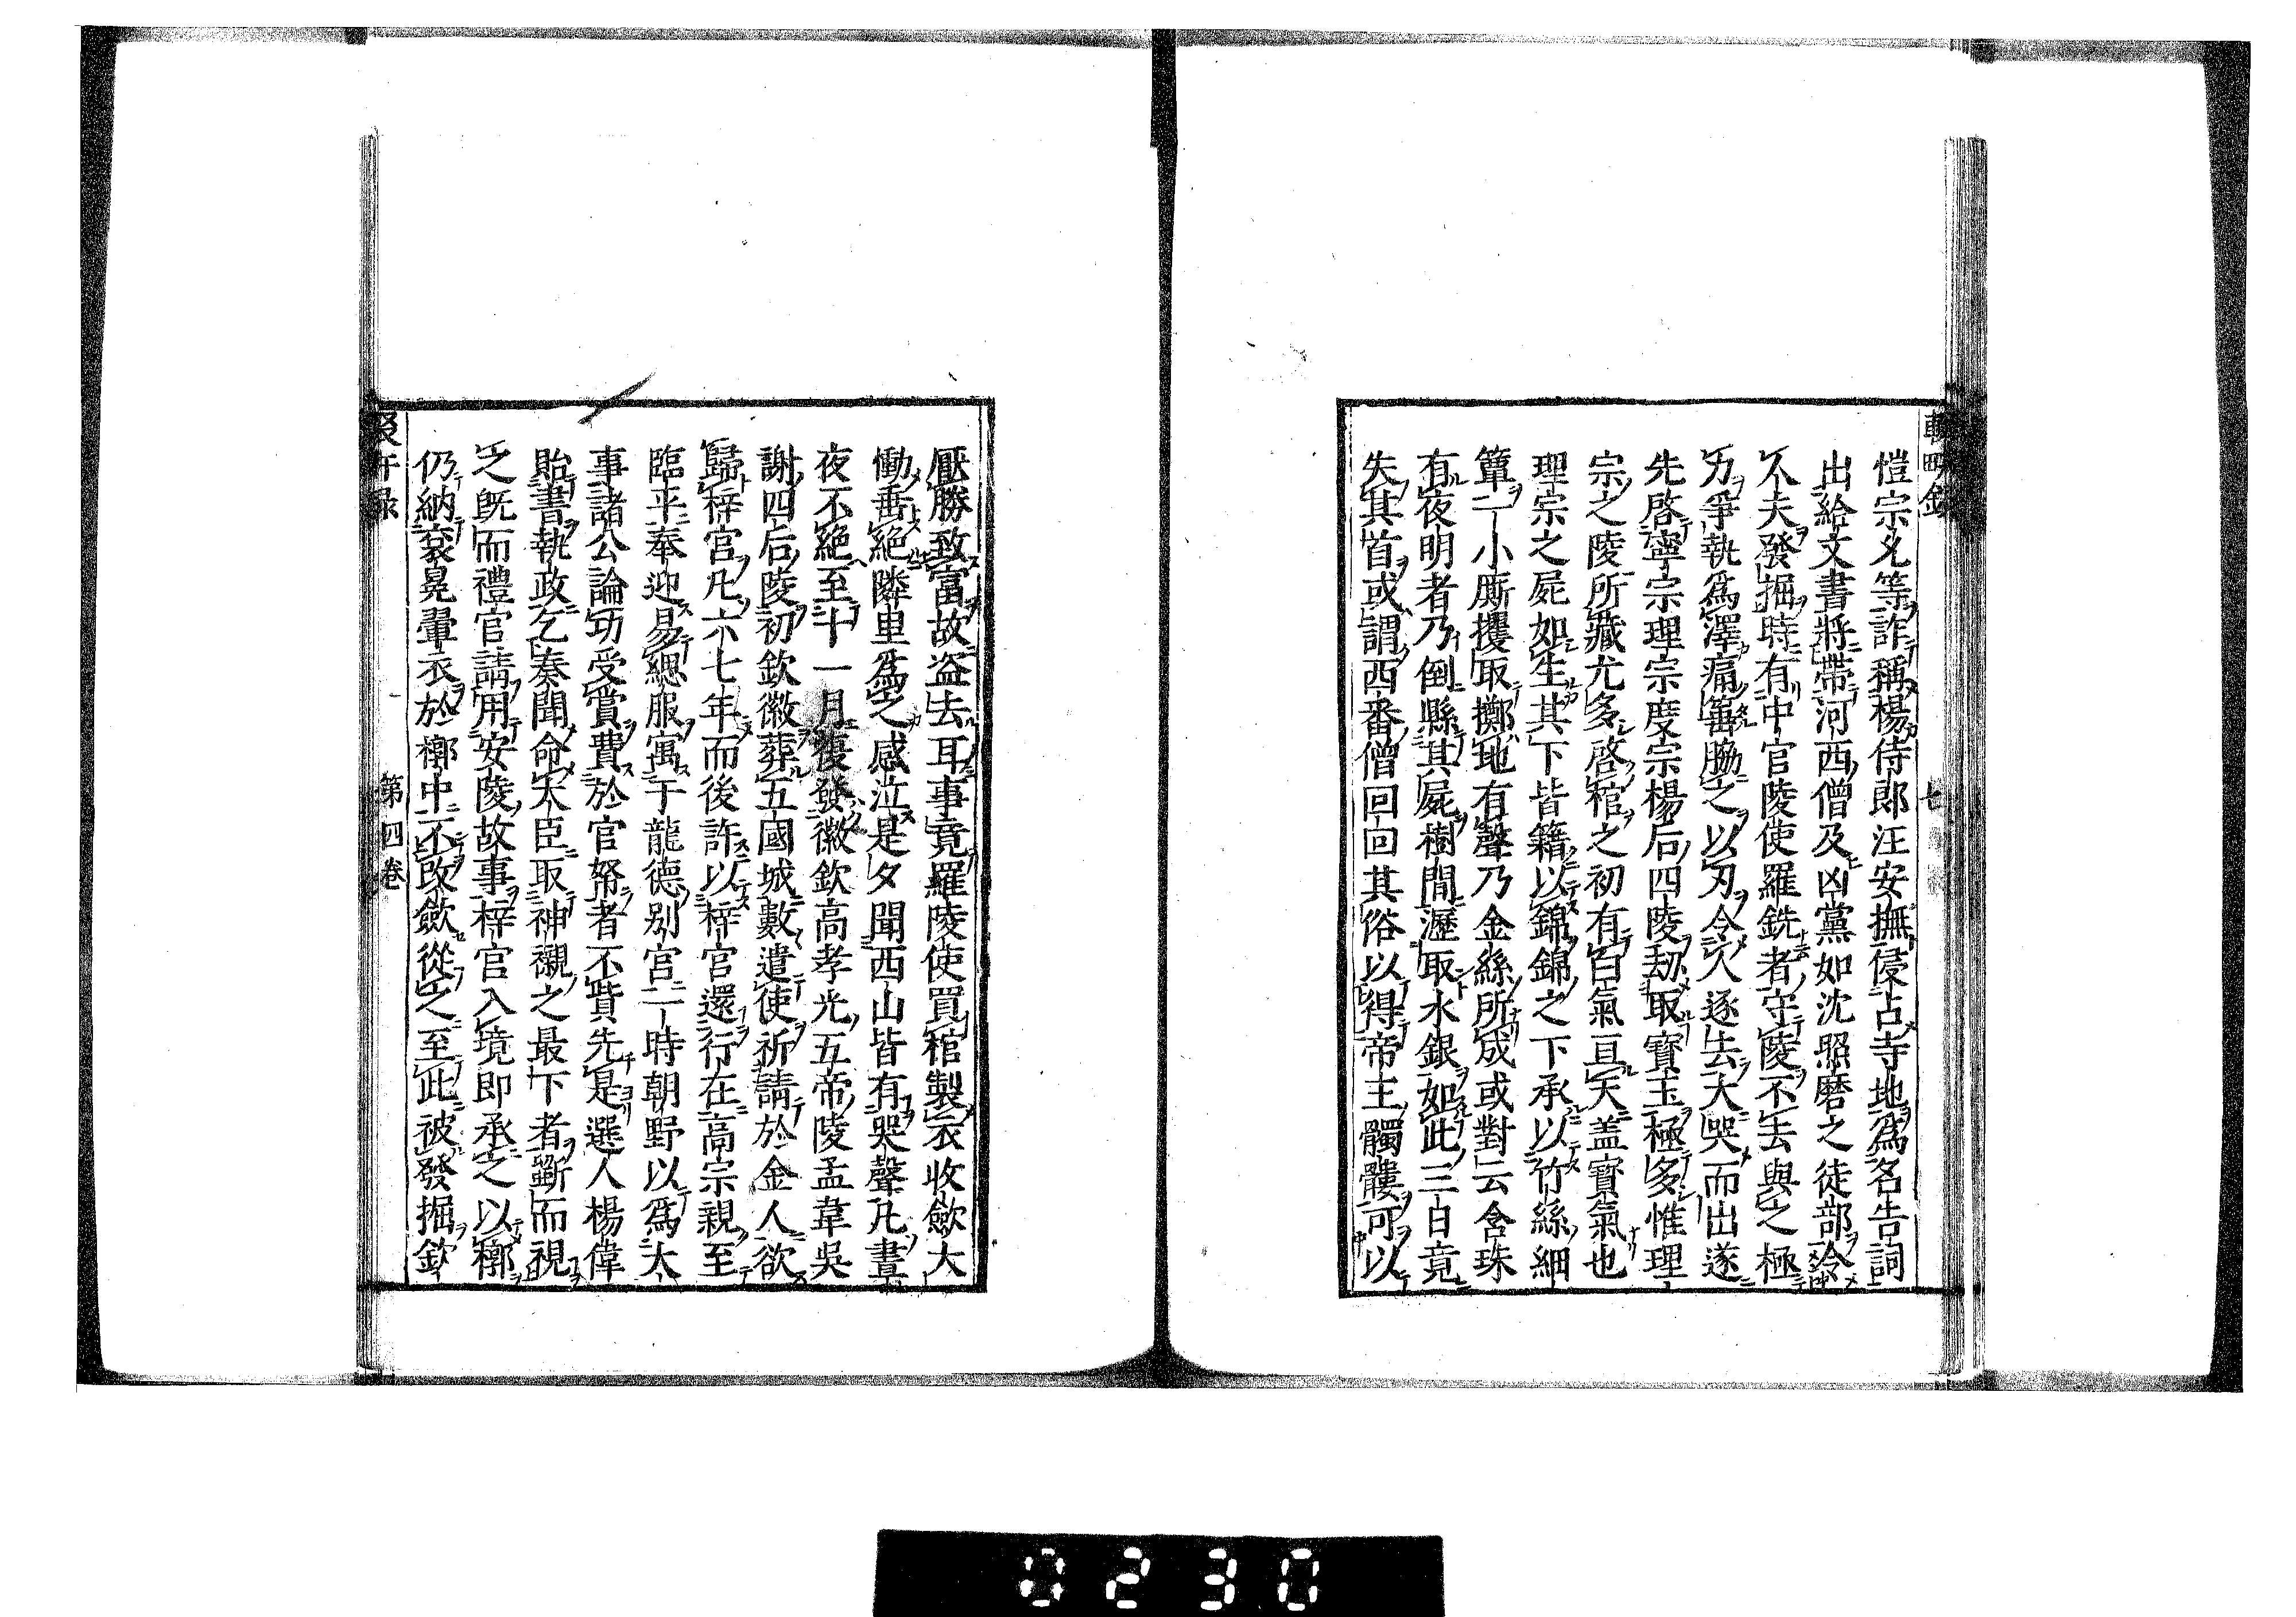 愷宗允等詐稱楊侍郎汪安撫侵占寺地爲名告詞
出給文書將帶河西僧及凶黨如沈照磨之徒部領
人夫發掘時有中官陵使羅銑者守陵不去與之極
力爭執爲澤痛箠脇之以刃令人逐去大哭而出遂
先啓寧宗理宗度宗楊后四陵刼取寳玉極多惟理
宗之陵所藏尤多啓棺之初有白氣亘天盖寳氣也
理宗之屍如生其下皆籍以錦錦之下承以竹絲細
簟一小厮攫取擲地有聲乃金絲所成或對云含珠
有夜明者乃倒縣其屍樹間瀝取水銀如此三日竟
失其首或謂西番僧回回其俗以得帝主髑髏可以
厭勝致富故盗去耳事竟羅陵使買棺製衣收歛大
慟垂絕隣里爲之感泣是夕聞西山皆有哭聲凡晝
夜不絕至十一月復發徽欽高孝光五帝陵孟韋吳
謝四后陵初欽徽葬五國城數遣使祈請於金人欲
歸梓宮凡六七年而後許以梓宮還行在高宗親至
臨平奉迎易緦服寓于龍德别宮一時朝野以爲大
事諸公論功受賞費於官帑者不貲先是選人楊偉
貽書執政乞奏聞命大臣取神櫬之最下者斵而視
之既而禮官請用安陵故事梓宮入境即承之以槨
仍納衮冕翬衣於槨中不改歛從之至此被發掘欽
第四卷